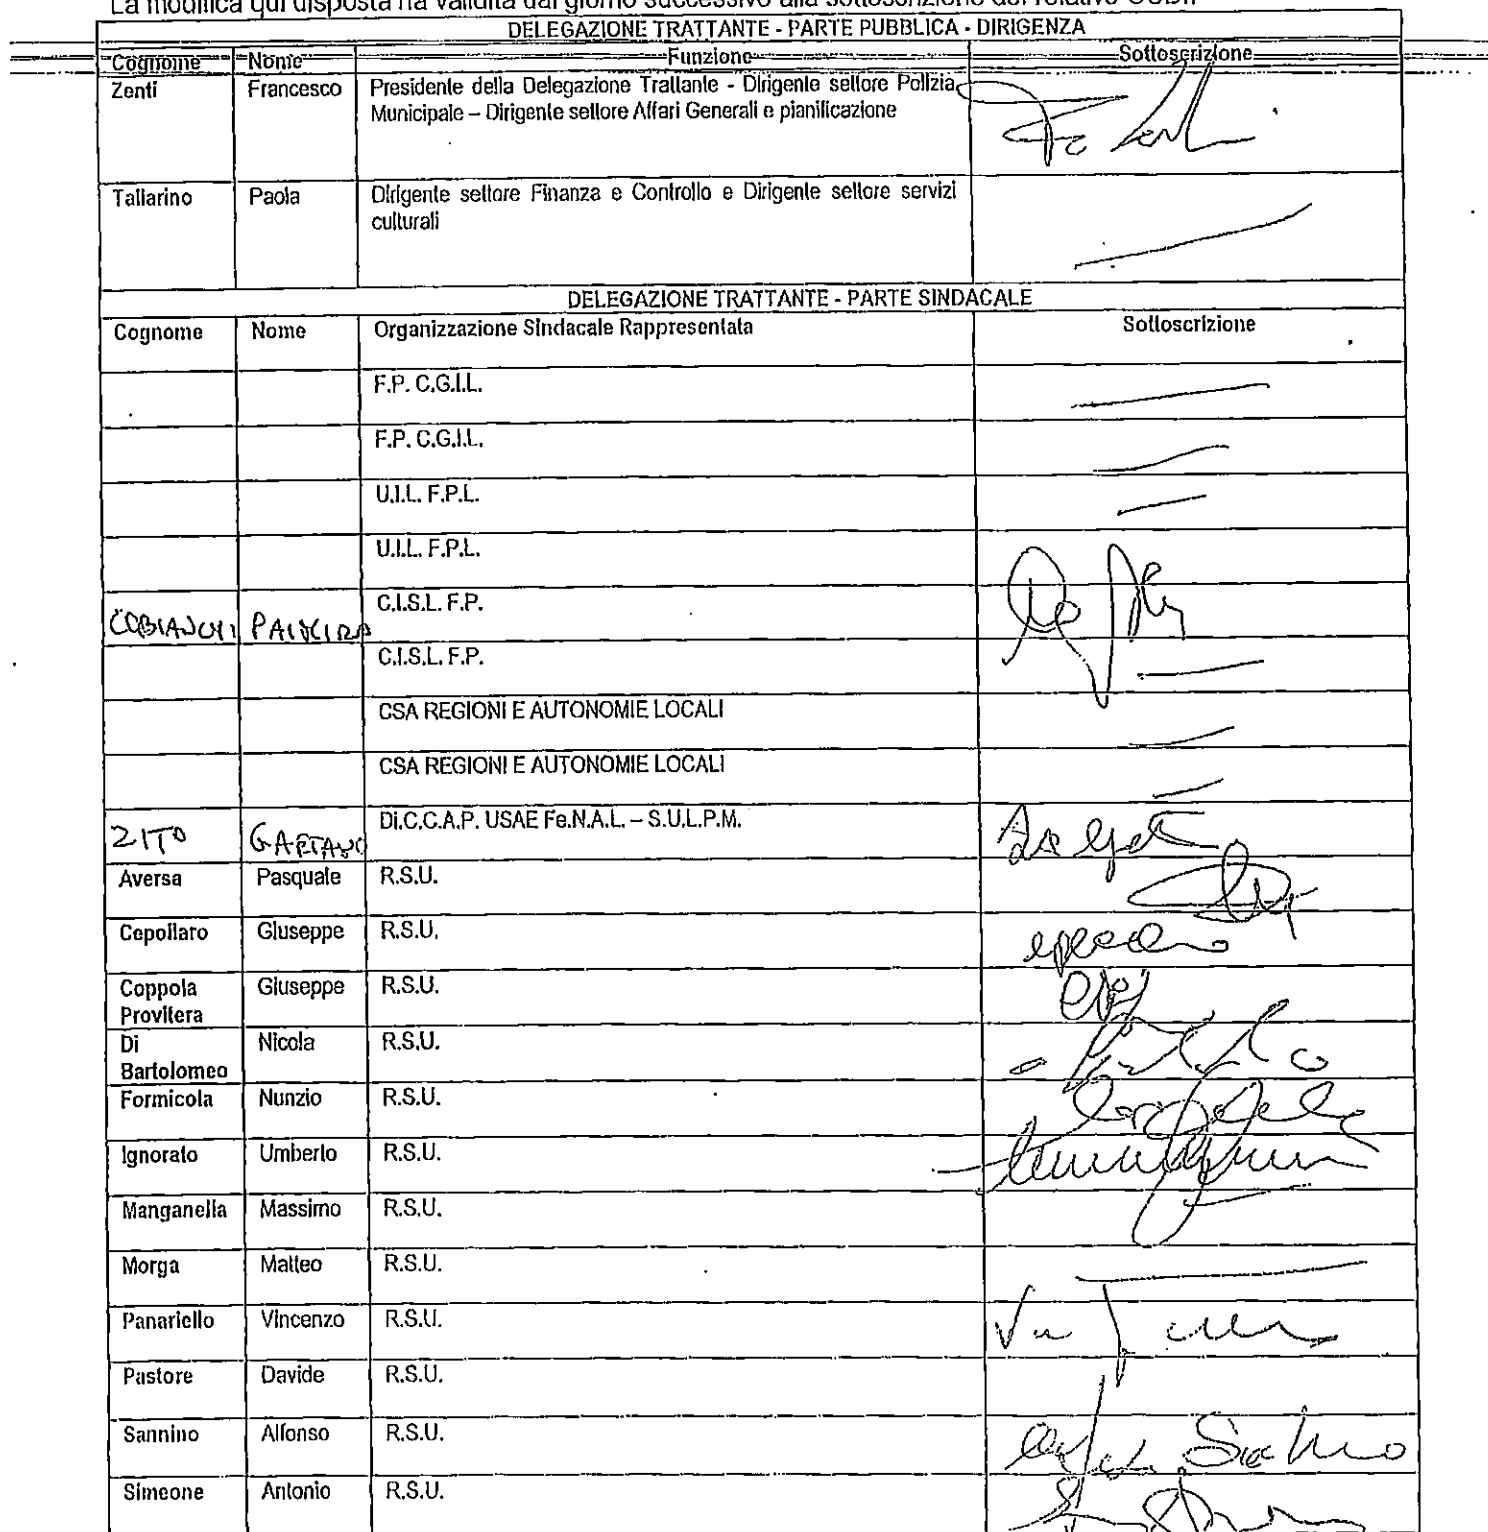 La modifica qui disposta ha validità dal giorno successivo alla sottoscrizione del relativo
DELEGAZIONE TRATTANTE - PARTE PUBBLICA - DIRIGENZA
Cognome Nome Funzione Sottoscrizione
Zenti Francesco Presidente della Delegazione Trattante - Dirigente settore Polizia
Municipale – Dirigente settore Affari Generali e pianificazione
Tallarino Paola Dirigente settore Finanza e Controllo e Dirigente settore servizi
culturali
DELEGAZIONE TRATTANTE - PARTE SINDACALE
Cognome Nome Organizzazione Sindacale Rappresentata Sottoscrizione
F.P. C.G.I.L.
F.P. C.G.I.L.
U.I.L. F.P.L.
U.I.L. F.P.L.
C.I.S.L. F.P.
C.I.S.L. F.P.
CSA REGIONI E AUTONOMIE LOCALI
CSA REGIONI E AUTONOMIE LOCALI
ZITO GAETANO Di.C.C.A.P. USAE Fe.N.A.L. – S.U.L.P.M.
Aversa Pasquale R.S.U.
Cepollaro Giuseppe R.S.U.
Coppola Giuseppe R.S.U.
Provitera
Di Nicola R.S.U.
Bartolomeo
Formicola Nunzio R.S.U.
Ignorato Umberto R.S.U.
Manganella Massimo R.S.U.
Morga Matteo R.S.U.
Panariello Vincenzo R.S.U.
Pastore Davide R.S.U.
Sannino Alfonso R.S.U.
Simeone Antonio R.S.U.